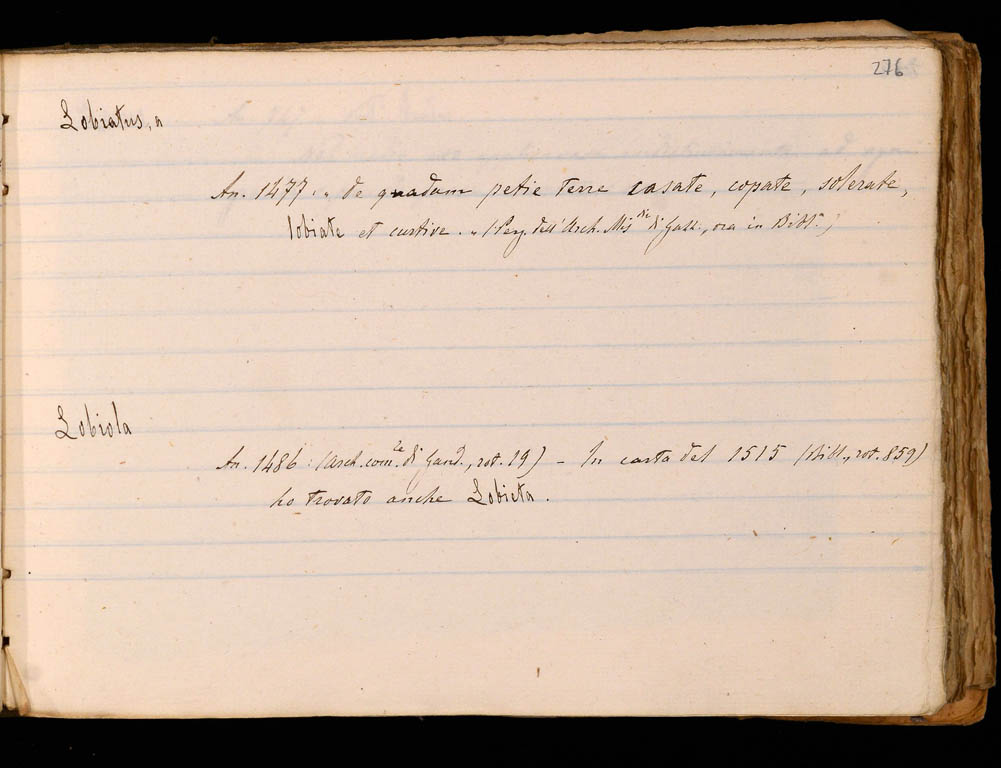 276
Lobiatus, a
An. 1477. „ de quadam petie terre casate, copate, solerate,
lobiate et curtive. „ (Perg. dell' Arch. Mis.die di Gall., ora in Bibl.a)
Lobiola
An. 1486. (Arch. com.le di Gand., rot. 19) – In carta del 1515 (Bibl., rot. 859)
ho trovato anche Lobieta.